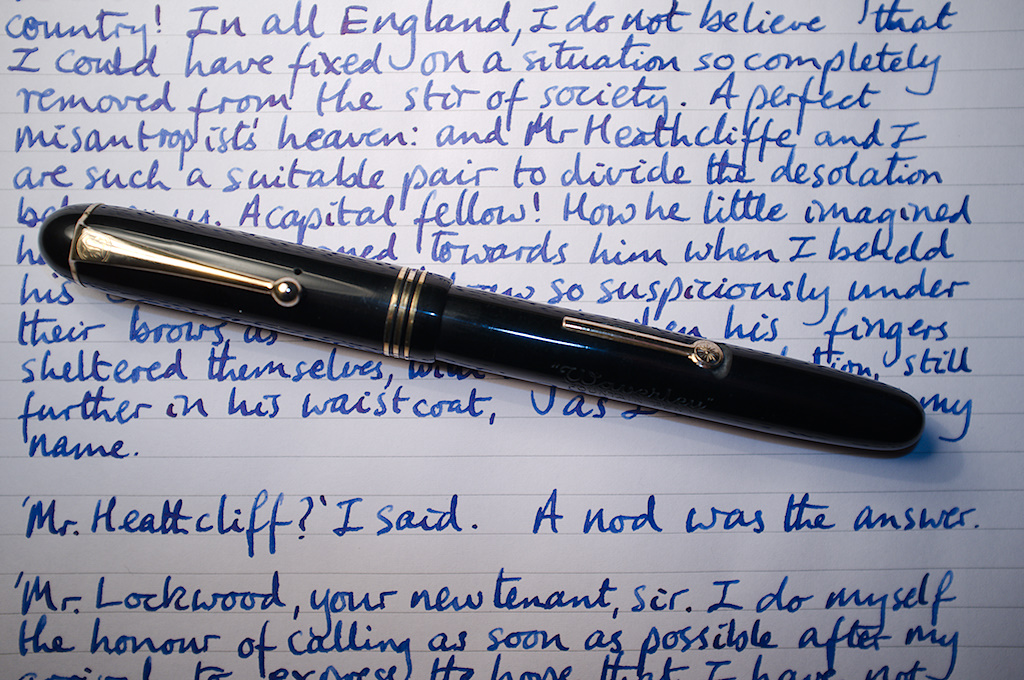 country! In all England, I do not believe that
I could have fixed on a situation so completely
removed from the stir of society. A perfect
misantropists' heaven: and Mr Heathcliffe and I
are such a suitable pair to divide the desolation
A capital fellow! How he little imagined
towards him when I beheld
his so suspiciously under
their brows as his fingers
sheltered themselves, still
further in his waistcoat, as I my
name.
"Waverley"
'Mr. Heathcliff?' I said. A nod was the answer.
'Mr. Lockwood, your new tenant, sir. I do myself
the honour of calling as soon as possible after my
arrival to express the hope that I have not